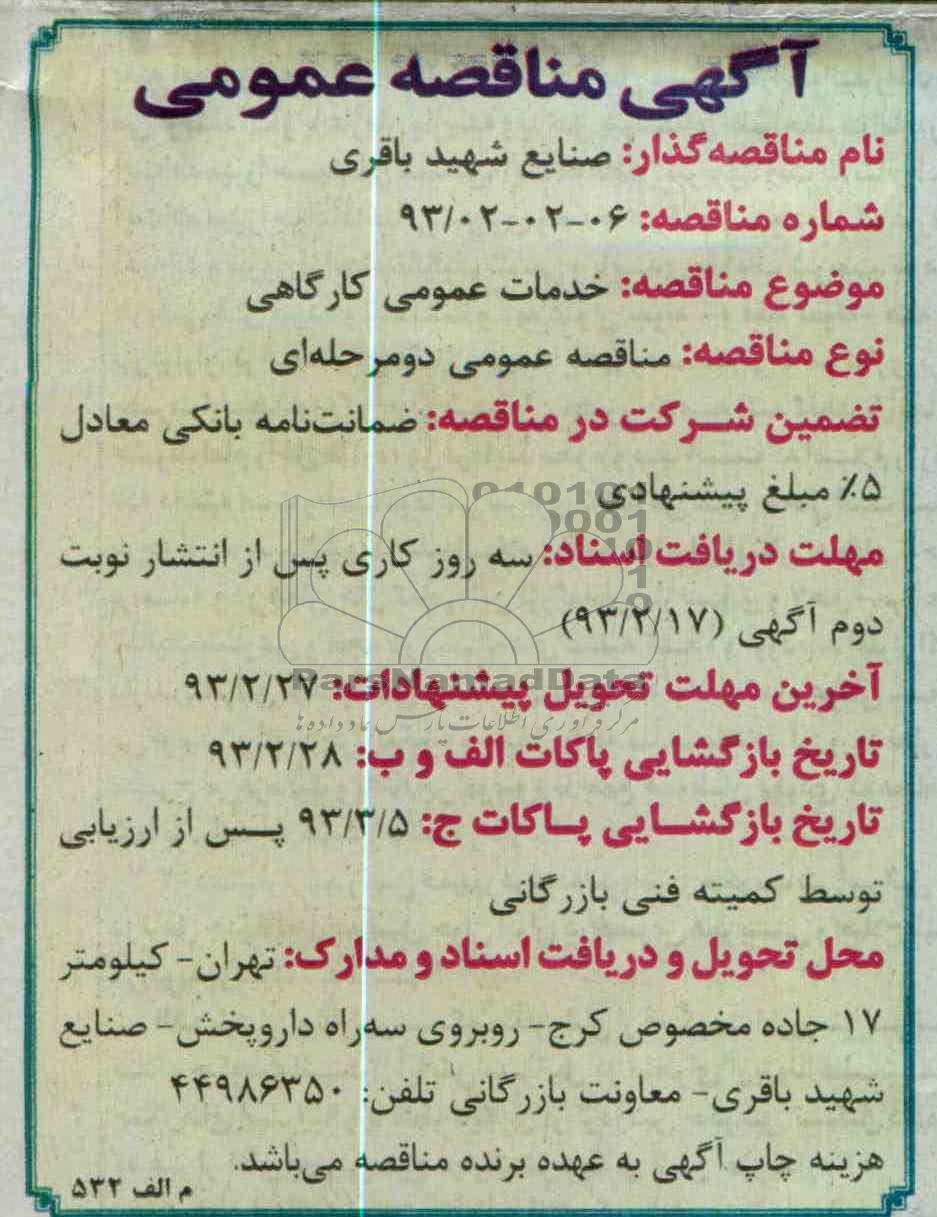 آگهی مناقصه عمومی
نام مناقصه‌گذار: صنایع شهید باقری
شماره مناقصه: ۰۶-۰۲-۹۳/۰۲
موضوع مناقصه: خدمات عمومی کارگاهی
نوع مناقصه: مناقصه عمومی دومرحله‌ای
تضمین شرکت در مناقصه: ضمانت‌نامه بانکی معادل
۵٪ مبلغ پیشنهادی
مهلت دریافت اسناد: سه روز کاری پس از انتشار نوبت
دوم آگهی (۹۳/۲/۱۷)
آخرین مهلت تحویل پیشنهادات: ۹۳/۲/۲۷
ParsNamadData
مرکز فرآوری اطلاعات پارس نماد داده‌ها
تاریخ بازگشایی پاکات الف و ب: ۹۳/۲/۲۸
تاریخ بازگشایی پاکات ج: ۹۳/۳/۵ پس از ارزیابی
توسط کمیته فنی بازرگانی
محل تحویل و دریافت اسناد و مدارک: تهران- کیلومتر
۱۷ جاده مخصوص کرج- روبروی سه‌راه داروپخش- صنایع
شهید باقری- معاونت بازرگانی تلفن: ۴۴۹۸۶۳۵۰
هزینه چاپ آگهی به عهده برنده مناقصه می‌باشد.
م الف ۵۳۲